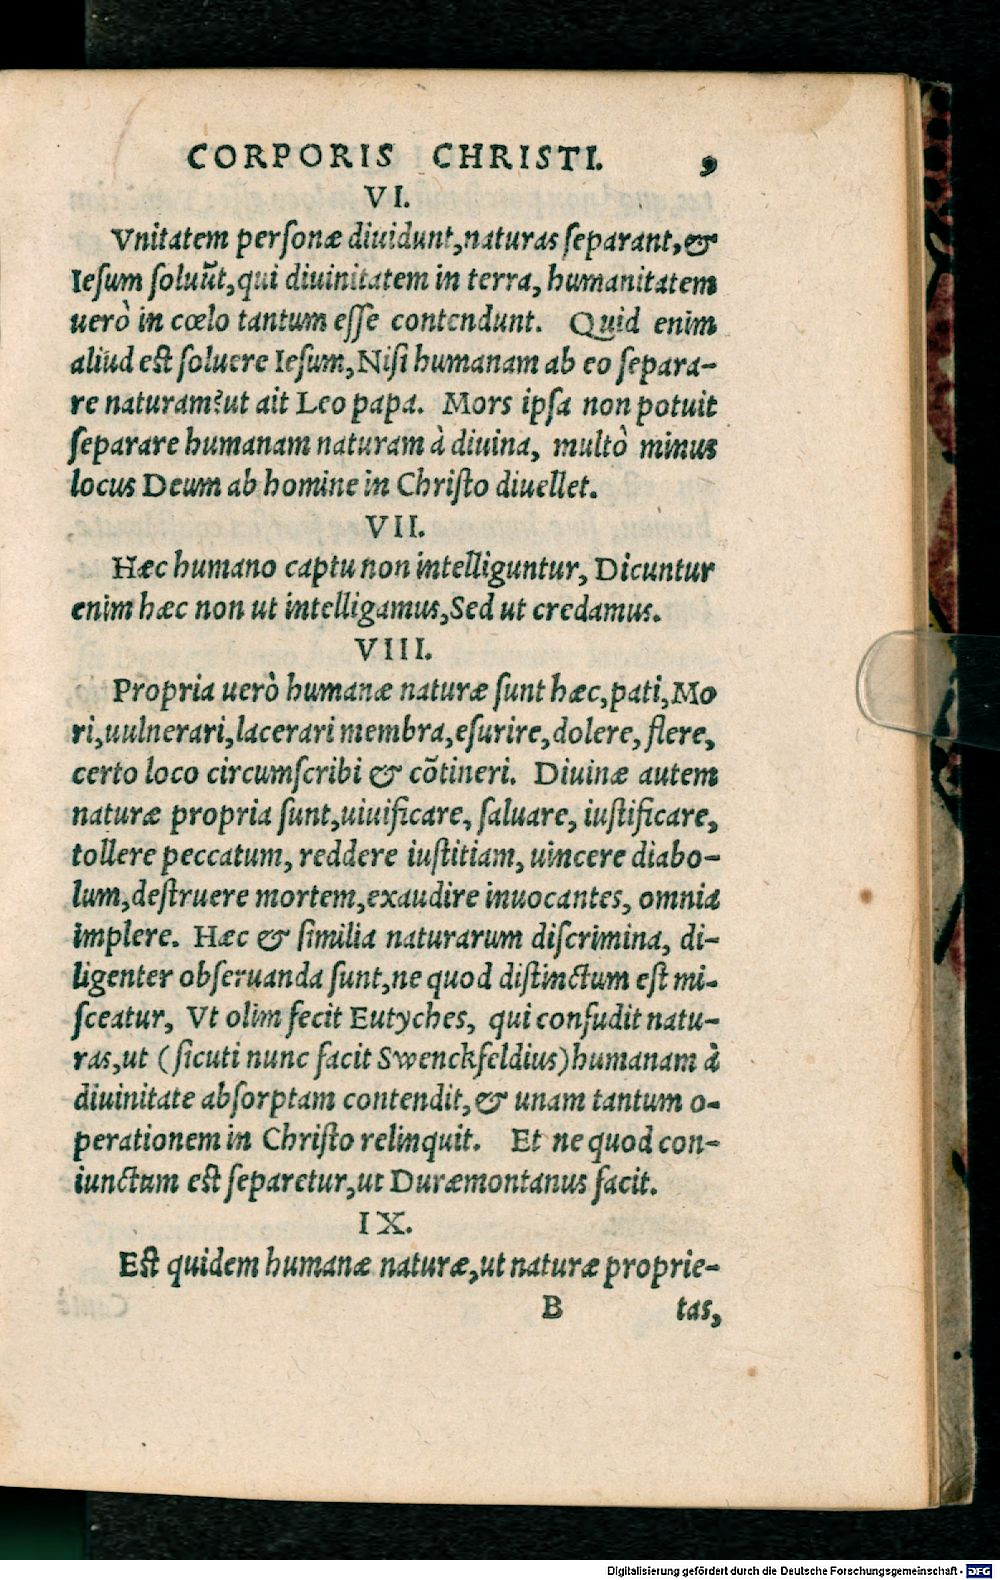 CORPORIS CHRISTI. 9
VI.
Vnitatem personæ diuidunt, naturas separant, &
Iesum soluūt, qui diuinitatem in terra, humanitatem
uerò in cœlo tantum esse contendunt. Quid enim
aliud est soluere Iesum, Nisi humanam ab eo separa-
re naturam? ut ait Leo papa. Mors ipsa non potuit
separare humanam naturam à diuina, multò minus
locus Deum ab homine in Christo diuellet.
VII.
Hæc humano captu non intelliguntur, Dicuntur
enim hæc non ut intelligamus, Sed ut credamus.
VIII.
Propria uerò humanæ naturæ sunt hæc, pati, Mo
ri, uulnerari, lacerari membra, esurire, dolere, flere,
certo loco circumscribi & cōtineri. Diuinæ autem
naturæ propria sunt, uiuificare, saluare, iustificare,
tollere peccatum, reddere iustitiam, uincere diabo-
lum, destruere mortem, exaudire inuocantes, omnia
implere. Hæc & similia naturarum discrimina, di-
ligenter obseruanda sunt, ne quod distinctum est mi-
sceatur, Vt olim fecit Eutyches, qui confudit natu-
ras, ut (sicuti nunc facit Swenckfeldius) humanam à
diuinitate absorptam contendit, & unam tantum o-
perationem in Christo relinquit. Et ne quod con-
iunctum est separetur, ut Duræmontanus facit.
IX.
Est quidem humanæ naturæ, ut naturæ proprie-
B tas,
Digitalisierung gefördert durch die Deutsche Forschungsgemeinschaft - DFG